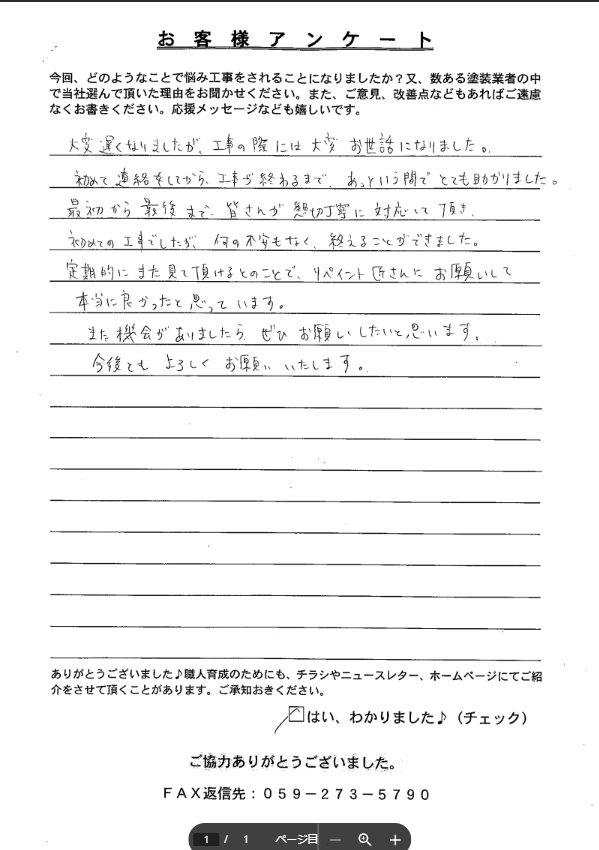 お客様アンケート
今回、どのようなことで悩み工事をされることになりましたか？又、数ある塗装業者の中
で当社選んで頂いた理由をお聞かせください。また、ご意見、改善点などもあればご遠慮
なくお書きください。応援メッセージなども嬉しいです。
大変遅くなりましたが、工事の際には大変お世話になりました。
初めて連絡をしてから、工事が終わるまで、あっという間でとても助かりました。
最初から最後まで、皆さんが懇切丁寧に対応して頂き、
初めての工事でしたが、何の不安もなく、終えることができました。
定期的にまた見て頂けるとのことで、リペイント匠さんにお願いして
本当に良かったと思っています。
また機会がありましたら、ぜひお願いしたいと思います。
今後ともよろしくお願いいたします。
ありがとうございました♪職人育成のためにも、チラシやニュースレター、ホームページにてご紹
介をさせて頂くことがあります。ご承知おきください。
はい、わかりました♪（チェック）
ご協力ありがとうございました。
ＦＡＸ返信先：０５９－２７３－５７９０
1 / 1 ページ目 — +